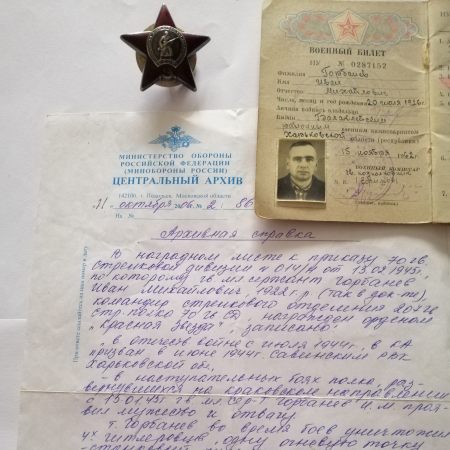 ВОЕННЫЙ БИЛЕТ
НУ № 0287152
Фамилия Горбанев
Имя Иван
Отчество Михайлович
Число, месяц и год рождения 20 июля 1926
Личная подпись владельца
Выдан Балаклейским
районным военным комиссариатом
Харьковской области (республики)
15 ноября 1962 г.
Военный комиссар
МИНИСТЕРСТВО ОБОРОНЫ
РОССИЙСКОЙ ФЕДЕРАЦИИ
(МИНОБОРОНЫ РОССИИ)
ЦЕНТРАЛЬНЫЙ АРХИВ
142100, г. Подольск, Московской области
октября № 2
На №
Архивная справка
В наградном листе к приказу 70 гв.
стрелковой дивизии № 014/н от 13.02.1945г.,
по которому гв. мл. сержант Горбанев
Иван Михайлович 1922 г.р. (так в док-те),
командир стрелкового отделения 205 гв.
стр. полка 70 гв. СД, награжден орденом
"Красная Звезда", записано:
- в отечеств. войне с июля 1944г., в КА
призван в июне 1944г. Савинским РВК
Харьковской обл.,
- в наступательных боях полка, раз-
вернувшихся на краковском направлении
с 15.01.45г. гв. мл. серж-т Горбанев И.М. проя-
вил мужество и отвагу
т. Горбанев во время боев уничтожил
4х гитлеровцев, одну огневую точку